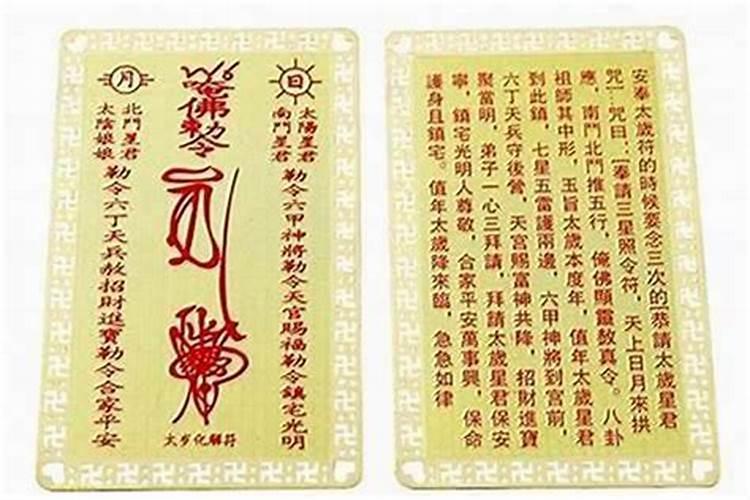 日
太陽星君
南鬥星君
勒令六甲神將勒令天官賜福勒令鎮宅光明
唵佛勅令
太岁化解符
月
北鬥星君
太陰娘娘
勒令六丁天兵赦招財進寶勒令合家平安
安奉太歲符的時候要念三次的[恭請太歲星君
咒]咒曰:[奉請三星照令符,天上日月來拱
應,南鬥北鬥推五行,俺佛顯靈敎真令。八卦
祖師其中形,玉旨太歲本度年,值年太歲星君
到此鎮,七星五雷護兩邊,六甲神將到宮前,
六丁天兵守後營,天宮賜富神共降,招財進寶
聚當明,弟子一心三拜請,拜請太歲星君保安
寧,鎮宅光明人尊敬,合家平安萬事興,保命
護身且鎮宅。值年太歲降來臨,急急如律